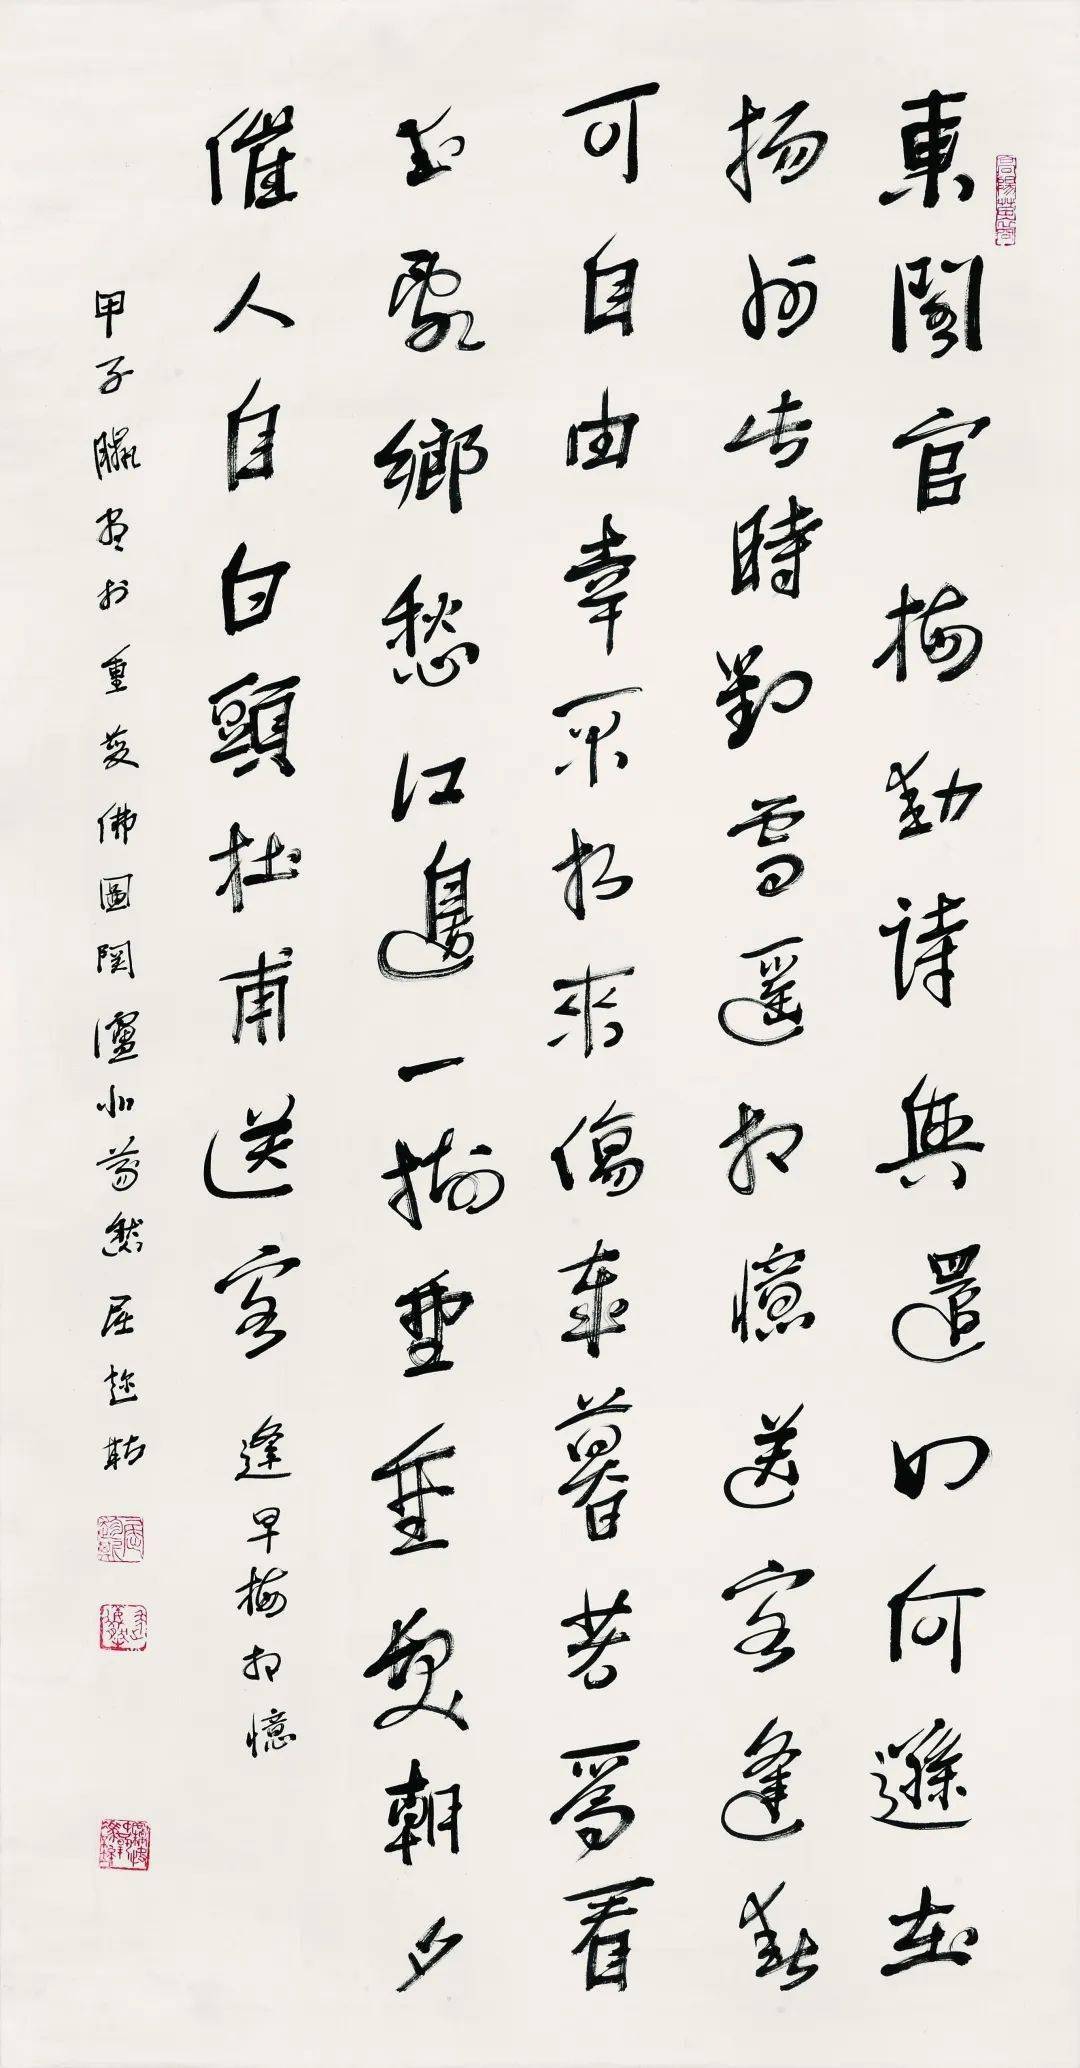 東閣官梅動詩興還如何遜在
揚州此時對雪遙相憶送客逢春
可自由幸不折來傷歲暮若為看
去亂鄉愁江邊一樹垂垂發朝夕
催人自白頭杜甫送客逢早梅相憶
甲子臘於重慶佛圖關屈趁斯